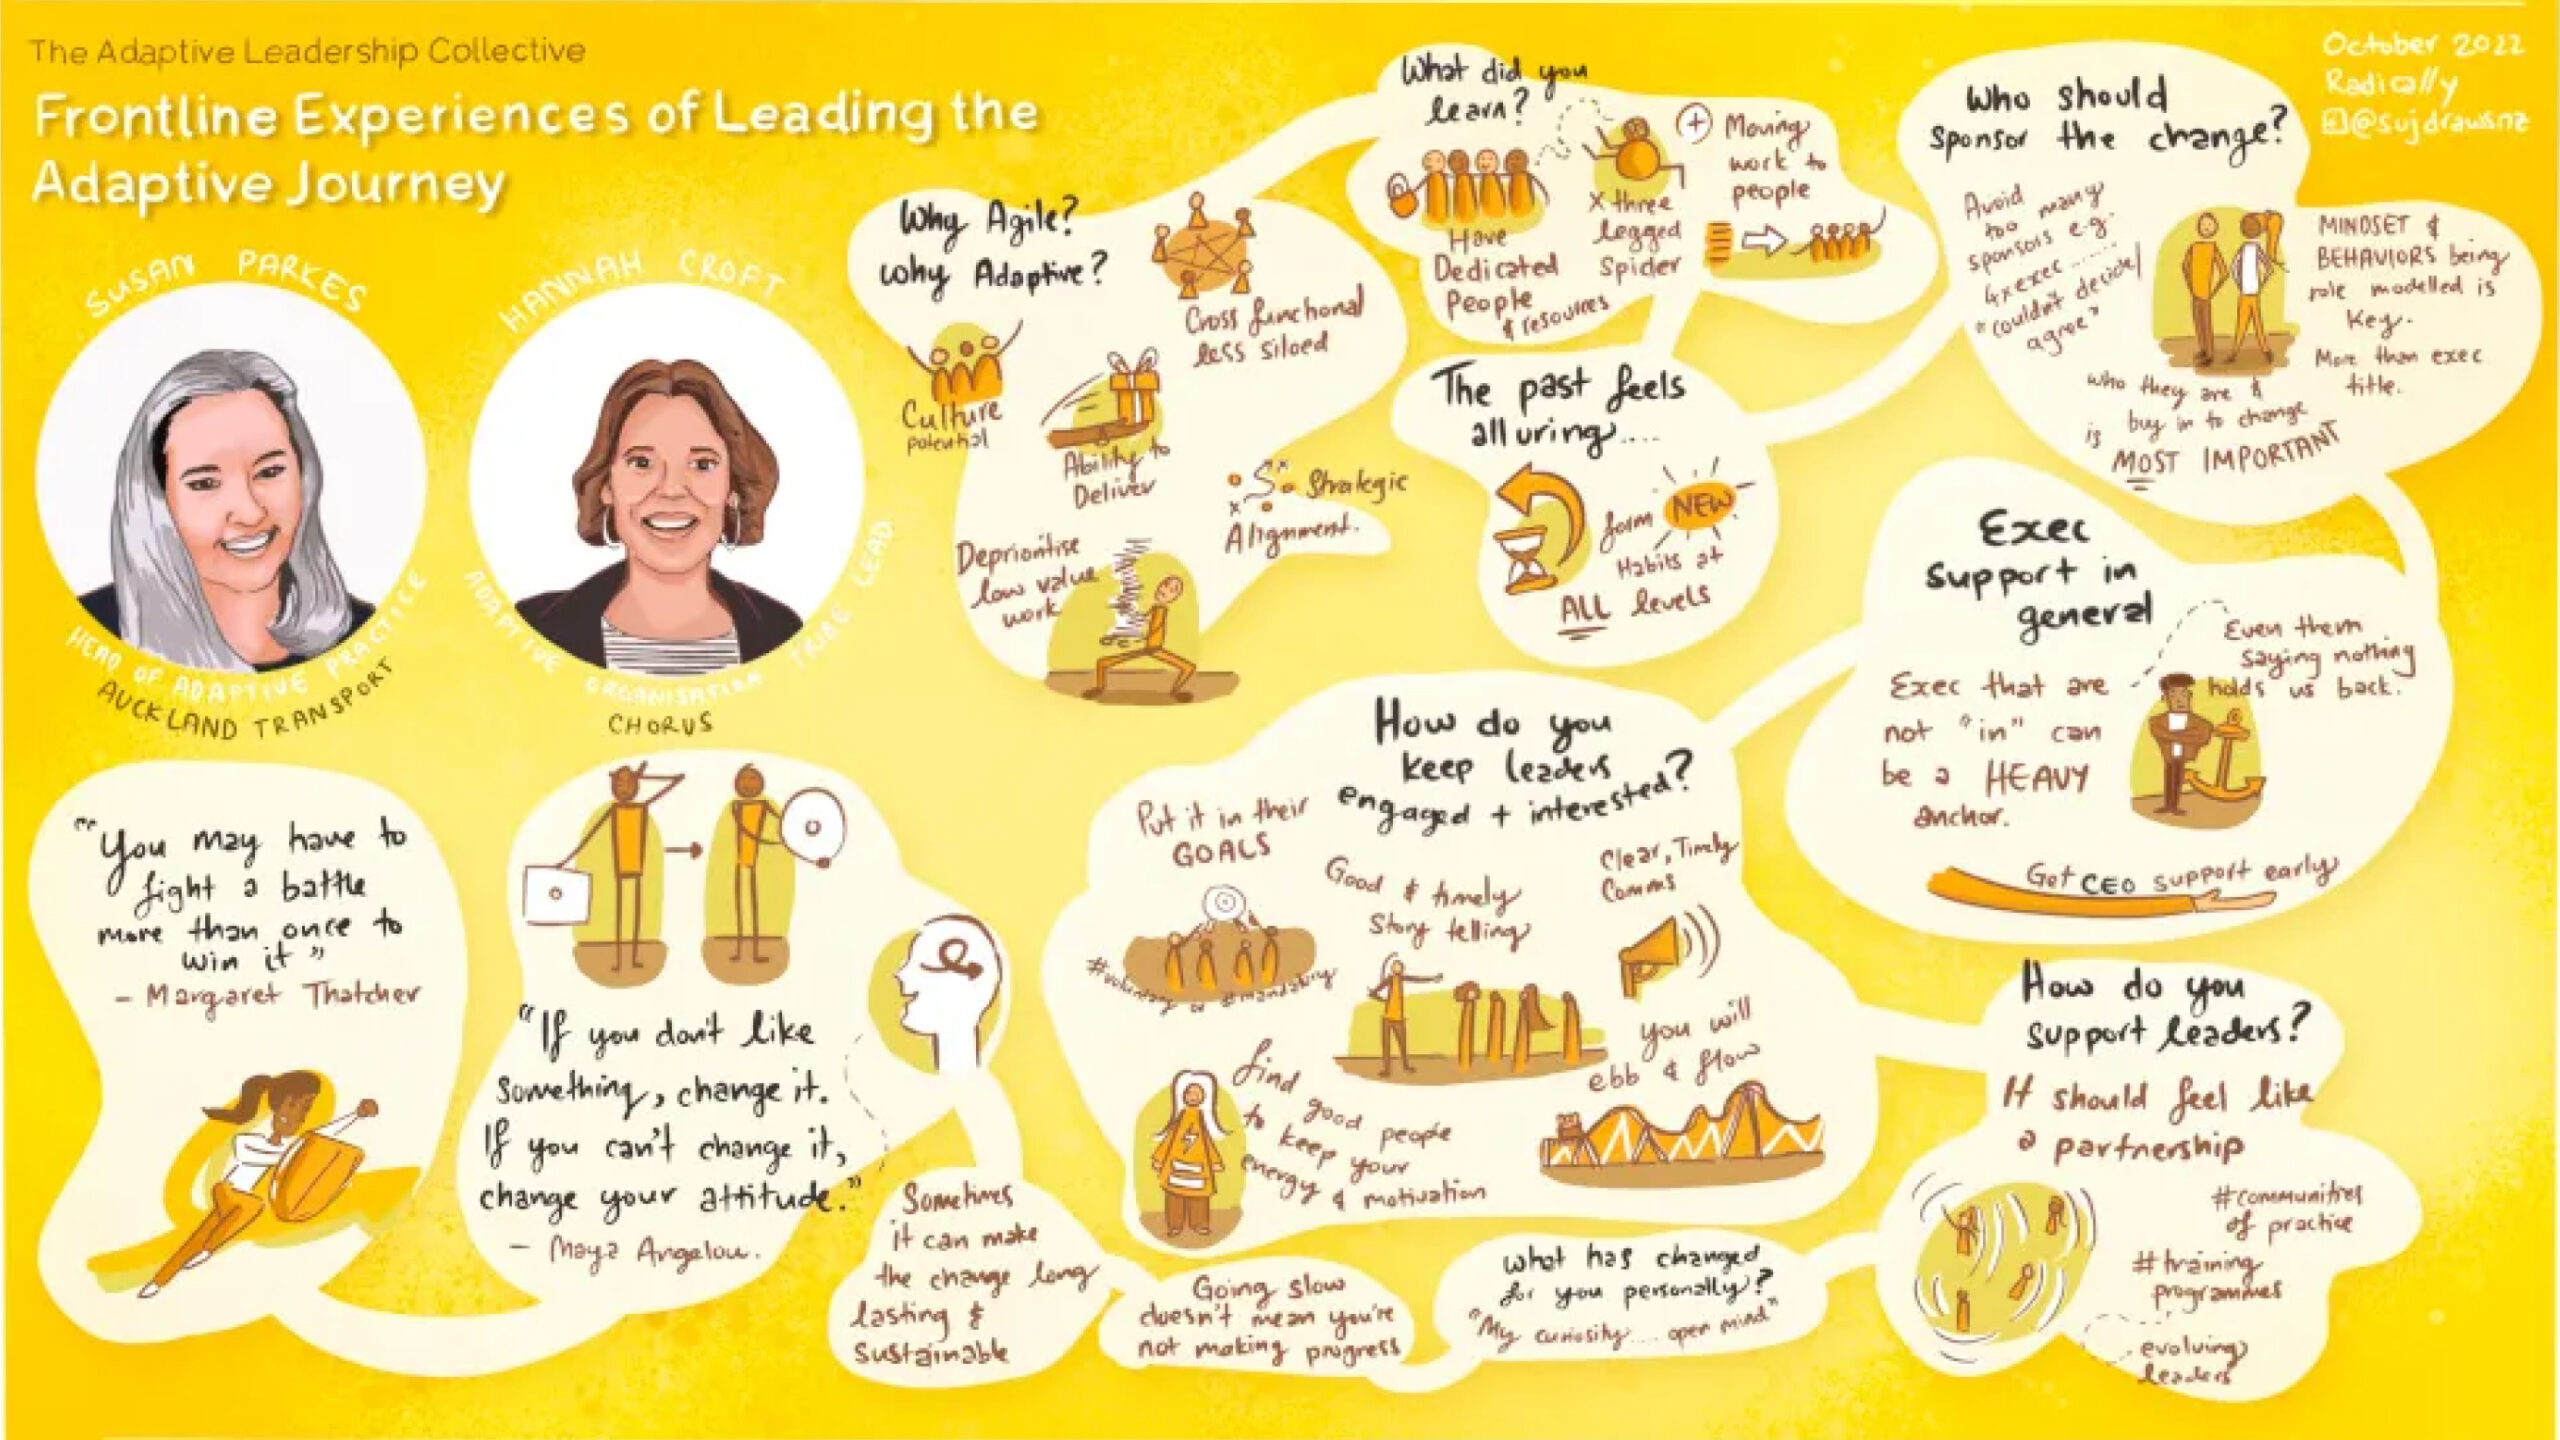 The Adaptive Leadership Collective
Frontline Experiences of Leading the
Adaptive Journey
October 2022
Radically
@sujdrawsnz
SUSAN PARKES
HEAD OF ADAPTIVE PRACTICE
AUCKLAND TRANSPORT
HANNAH CROFT
ADAPTIVE ORGANISATION TRIBE LEAD
CHORUS
Why Agile?
Why Adaptive?
Cross functional
less siloed
Culture
potential
Ability to
Deliver
Strategic
Alignment.
Deprioritise
low value
work
What did you
learn?
Have
Dedicated
People
& resources
x three
legged
Spider
+ Moving
work to
people
The past feels
alluring....
form NEW
Habits at
ALL levels
Who should
sponsor the change?
Avoid
too many
sponsors e.g.
4xexec......
"couldn't decide/
agree"
MINDSET &
BEHAVIORS being
role modelled is
Key.
More than exec
title.
who they are &
buy in to change
is MOST IMPORTANT
Exec
support in
general
Even them
saying nothing
holds us back.
Exec that are
not "in" can
be a HEAVY
anchor.
Get CEO support early
How do you
keep leaders
engaged + interested?
Put it in their
GOALS
#voluntary or #mandatory
Good & timely
Story telling
Clear, Timely
Comms
you will
ebb & flow
find good people
to keep your
energy & motivation
How do you
support leaders?
It should feel like
a partnership
#communities
of practice
#training
programmes
evolving
leaders
What has changed
for you personally?
"My curiosity.... open mind"
Going slow
doesn't mean you're
not making progress
Sometimes
it can make
the change long
lasting &
sustainable
"If you don't like
something, change it.
If you can't change it,
change your attitude."
- Maya Angelou.
"You may have to
fight a battle
more than once to
win it"
- Margaret Thatcher